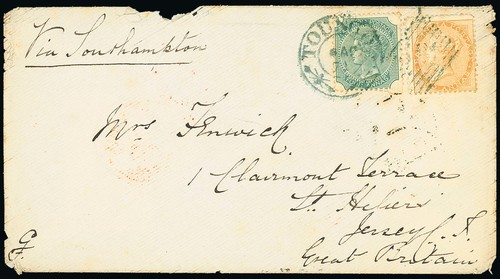 Via Southampton
Mrs Fenwick
1 Clairmont Terrace
St. Heliers
Jersey C. I.
Great Britain